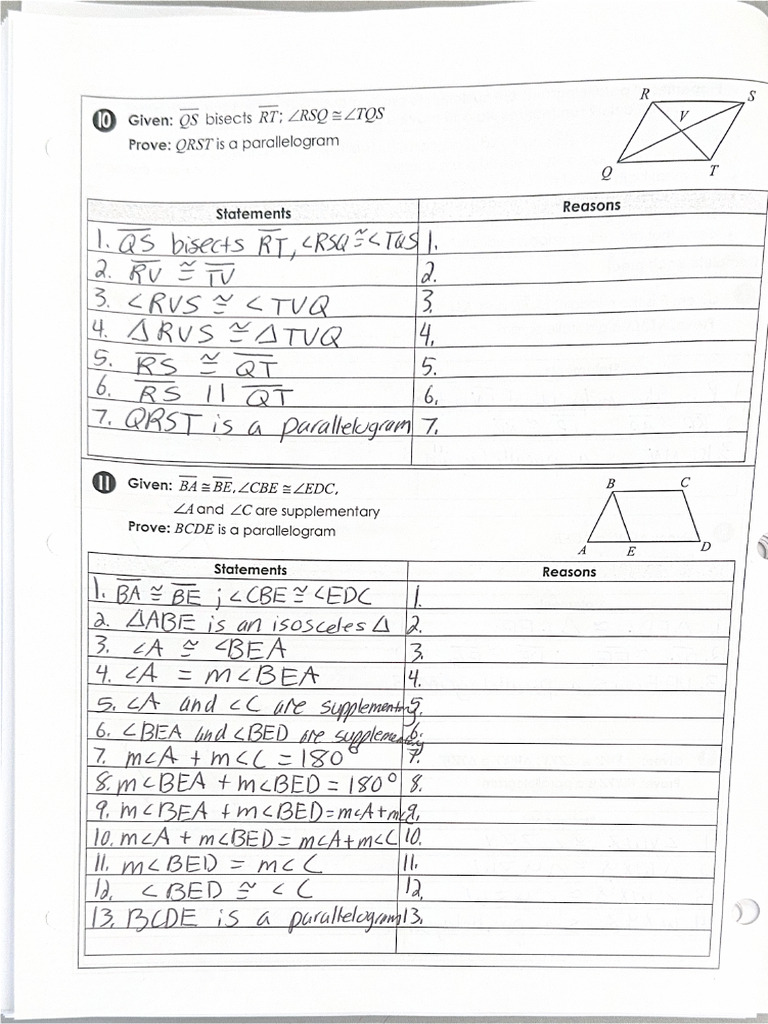 10 Given: QS bisects RT; ∠RSQ ≅ ∠TQS
Prove: QRST is a parallelogram
R
S
V
Q
T
Statements
Reasons
1. QS bisects RT, ∠RSQ ≅ ∠TQS
1.
2. RV ≅ TV
2.
3. ∠RVS ≅ ∠TVQ
3.
4. △RVS ≅ △TVQ
4.
5. RS ≅ QT
5.
6. RS || QT
6.
7. QRST is a parallelogram
7.
11 Given: BA ≅ BE, ∠CBE ≅ ∠EDC,
∠A and ∠C are supplementary
Prove: BCDE is a parallelogram
B
C
A
E
D
Statements
Reasons
1. BA ≅ BE ; ∠CBE ≅ ∠EDC
1.
2. △ABE is an isosceles △
2.
3. ∠A ≅ ∠BEA
3.
4. ∠A = m∠BEA
4.
5. ∠A and ∠C are supplementary
5.
6. ∠BEA and ∠BED are supplementary
6.
7. m∠A + m∠C = 180°
7.
8. m∠BEA + m∠BED = 180°
8.
9. m∠BEA + m∠BED = m∠A + m∠C
9.
10. m∠A + m∠BED = m∠A + m∠C
10.
11. m∠BED = m∠C
11.
12. ∠BED ≅ ∠C
12.
13. BCDE is a parallelogram
13.